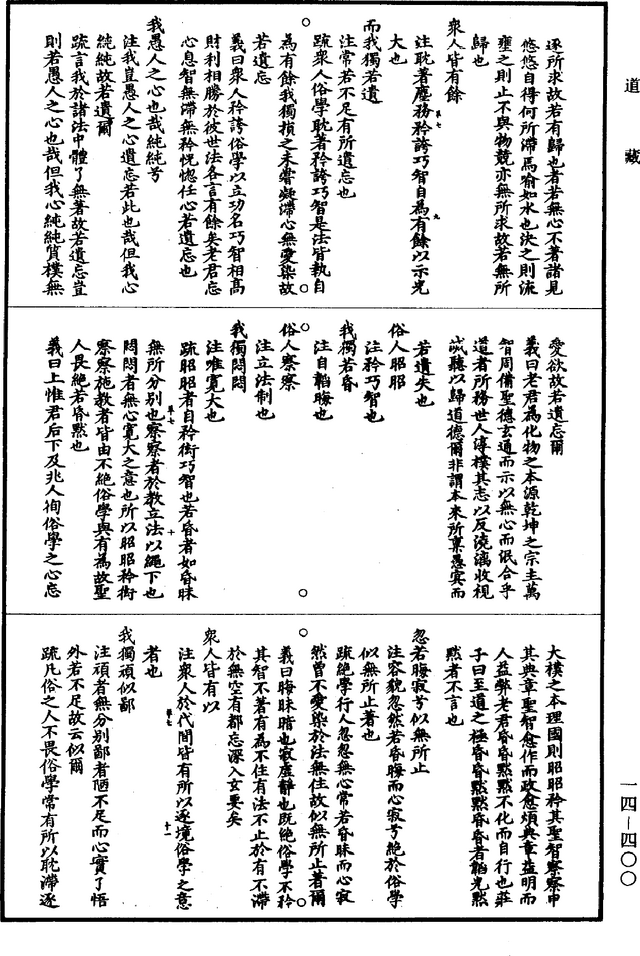 道藏
逐所求故若有歸也者若無心不著諸見
悠悠自得何所滯焉喻如水也決之則流
壅之則止不與物競亦無所求故若無所
歸也
衆人皆有餘
注耽著塵務矜誇巧智自為有餘以示光
大也
而我獨若遺
注常若不足有所遺忘也
疏衆人俗學耽著矜誇巧智是法皆執自
為有餘我獨損之未嘗凝滯心無愛染故
若遺忘
義曰衆人矜誇俗學以立功名巧智相高
財利相勝於彼世法各言有餘矣老君忘
心息智無滯無矜恍惚任心若遺忘也
我愚人之心也哉純純兮
注我豈愚人之心遺忘若此也哉但我心
純純故若遺爾
疏言我於諸法中體了無著故若遺忘豈
則若愚人之心也哉但我心純純質樸無
愛欲故若遺忘爾
義曰老君為化物之本源乾坤之宗主萬
智周備聖德玄通而示以無心而泯合乎
道者所務世人淳樸其志以反澆漓收視
諴聽以歸道德爾非謂本來所稟愚寞而
若遺失也
俗人昭昭
注矜巧智也
我獨若昏
注自韜晦也
俗人察察
注立法制也
我獨悶悶
注唯寬大也
疏昭昭者自矜衒巧智也若昏者如昏昧
無所分別也察察者於教立法以繩下也
悶悶者無心寬大之意也所以昭昭矜衒
察察施教者皆由不絕俗學與有為故聖
人畏絕若昏默也
義曰上惟君后下及兆人徇俗學之心忘
大樸之本理國則昭昭矜其聖智察察申
其典章聖智愈作而政愈煩典章益明而
人益弊老君昏昏默默不化而自行也莊
子曰至道之極昏昏默默昏昏者韜光默
默者不言也
忽若晦寂兮似無所止
注容貌忽然若昏晦而心寂兮絕於俗學
似無所止著也
疏絕學行人忽忽無心常若昏昧而心寂
然曾不愛染於法無住故似無所止著爾
義曰晦昧暗也寂虛靜也既絕俗學不矜
其智不著有為不住有法不止於有不滯
於無空有都忘深入玄要矣
衆人皆有以
注衆人於代間皆有所以逐境俗學之意
者也
我獨頑似鄙
注頑者無分別鄙者陋不足而心實了悟
外若不足故云似爾
疏凡俗之人不畏俗學常有所以耽滯逐
一四—四〇〇